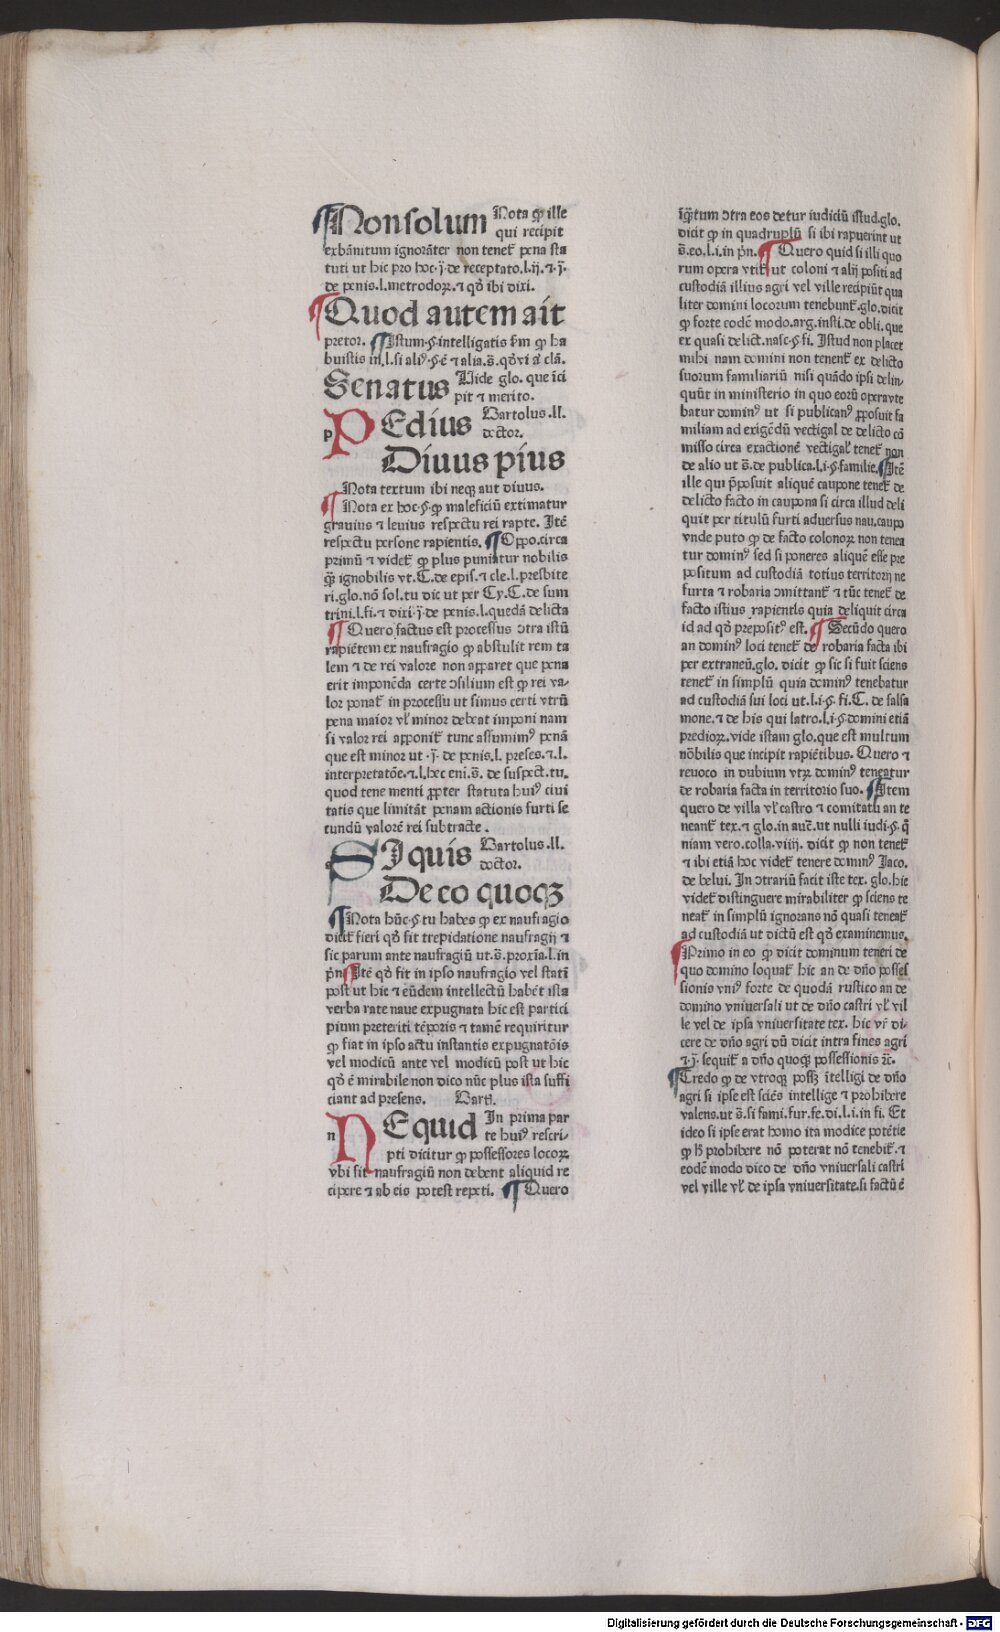 ¶Non solum Nota ꝙ ille
qui recipit
exbānitum ignorāter non tenet᷑ pena sta
tuti ut hic pro hoc.j̄.de receptato.l.ij.⁊.j̄.
de penis.l.metrodoꝝ.⁊ qď ibi dixi.
¶Quod autem ait
pretor. ¶Istum.§.intelligatis ẜm ꝙ ha
buistis in.l.si aliꝰ.§.ē ⁊ alia.s̄. qď vi
Senatus Vide glo. que īci
pit ⁊ merito.
p PEdius Bartolus.ll.
doctor.
Diuus pius
Nota textum ibi neqꝫ aut diuus.
¶Nota ex hoc.§.ꝙ maleficiū extimatur
grauius ⁊ leuius respectu rei rapte. Itē
respectu persone rapientis. ¶Oppo.circa
primū ⁊ videt᷑ ꝙ plus puniatur nobilis
ꝗ̄ ignobilis vt.C.de epis.⁊ cle.l.presbite
ri.glo.nō sol.tu dic ut per Cy.C.de sum
trini.l.fi.⁊ dixi.j̄.de penis.l.quedā delicta
¶Quero factus est processus ↄtra istū
rapiētem ex naufragio ꝙ abstulit rem ta
lem ⁊ de rei valore non apparet que pena
erit imponēda certe ↄsilium est ꝙ rei va-
lor ponat᷑ in processu ut simus certi vtrū
pena maior vl̕ minor debeat imponi nam
si valor rei apponit᷑ tunc assumimꝰ penā
que est minor ut.j̄. de penis.l. preses.⁊.l.
interpretatōe.⁊.l.hec eni.s̄. de suspect.tu.
quod tene menti ꝓpter statuta huiꝰ ciui
tatis que limitāt penam actionis furti se
cundū valorē rei subtracte.
s SI quis Bartolus.ll.
doctor.
De eo quoqꝫ
¶Nota hūc.§.tu habes ꝙ ex naufragio
dicit᷑ fieri qď fit trepidatione naufragij ⁊
sic parum ante naufragiū ut.s̄.proxīa.l.in
pn̄.¶Itē qď fit in ipso naufragio vel statī
post ut hic ⁊ eūdem intellectū habēt ista
verba rate naue expugnata hic est partici
pium preteriti tēporis ⁊ tamē requiritur
ꝙ fiat in ipso actu instantis expugnatōis
vel modicū ante vel modicū post ut hic
qď ē mirabile non dico nūc plus ista suffi
ciant ad presens. Barꝉ.
n NE quid In prima par
te huiꝰ rescri-
pti dicitur ꝙ possessores locoꝝ
vbi fit naufragiū non debent aliquid re
cipere ⁊ ab eis potest repeti. ¶Quero
īꝗ̄tum ↄtra eos detur iudiciū istud.glo.
dicit ꝙ in quadruplū si ibi rapuerint ut
s̄.eo.l.i.in pn̄. ¶Quero quid si illi quo
rum opera vtit᷑ ut coloni ⁊ alij positi ad
custodiā illius agri vel ville recipiūt qua
liter domini locorum tenebunt᷑.glo.dicit
ꝙ forte eodē modo.arg.insti.de obli.que
ex quasi delict.nasc.§.fi. Istud non placet
mihi nam domini non tenent᷑ ex delicto
suorum familiariū nisi quādo ipsi delin-
quūt in ministerio in quo eorū opera vte
batur dominꝰ ut si publicanꝰ ꝓposuit fa
miliam ad exigēdū vectigal de delicto cō
misso circa exactionē vectigal̕ tenet᷑ non
de alio ut s̄.de publica.l.i.§.familie.¶Itē
ille qui p̄posuit aliquē caupone tenet᷑ de
delicto facto in caupona si circa illud deli
quit per titulū furti aduersus nau.caupo
vnde puto ꝙ de facto colonoꝝ non tenea
tur dominꝰ sed si poneres aliquē esse pre
positum ad custodiā totius territorij ne
furta ⁊ robaria ↄmittant᷑ ⁊ tūc tenet᷑ de
facto istius rapientis quia deliquit circa
id ad qď prepositꝰ est. ¶Secūdo quero
an dominꝰ loci tenet᷑ de robaria facta ibi
per extraneū.glo. dicit ꝙ sic si fuit sciens
tenet᷑ in simplū quia dominꝰ tenebatur
ad custodiā sui loci ut.l.i.§.fi.C. de falsa
mone.⁊ de his qui latro.l.i.§.domini etiā
predioꝝ.vide istam glo.que est multum
nōbilis que incipit rapiētibus. Quero ⁊
reuoco in dubium vtꝝ dominꝰ teneatur
de robaria facta in territorio suo. ¶Item
quero de villa vl̕ castro ⁊ comitatu an te
neant᷑ tex.⁊ glo.in auc̄.ut nulli iudi.§.ꝗ
niam vero.colla.viiij. dicit ꝙ non tenet᷑
⁊ ibi etiā hoc videt᷑ tenere dominꝰ Jaco.
de belui. In ↄtrariū facit iste tex. glo.hic
videt᷑ distinguere mirabiliter ꝙ sciens te
neat᷑ in simplū ignorans nō quasi teneat᷑
ad custodiā ut dictū est qď examinemus.
¶Primo in eo ꝙ dicit dominum teneri de
quo domino loquat᷑ hic an de dn̄o posses
sionis vniꝰ forte de quodā rustico an de
domino vniuersali ut de dn̄o castri vl̕ vil
le vel de ipsa vniuersitate tex. hic vr̄ di-
cere de dn̄o agri dū dicit intra fines agri
⁊.j̄. sequit᷑ a dn̄o quoqꝫ possessionis ⁊c.
¶Credo ꝙ de vtroqꝫ possꝫ ītelligi de dn̄o
agri si ipse est sciēs intellige ⁊ prohibere
valens.ut s̄.si fami.fur.fe.di.l.i.in fi. Et
ideo si ipse erat homo ita modice potētie
ꝙ hꝫ prohibere nō poterat nō tenebit᷑.⁊
eodē modo dico de dn̄o vniuersali castri
vel ville vl̕ de ipsa vniuersitate.si factū ē
Digitalisierung gefördert durch die Deutsche Forschungsgemeinschaft - DFG